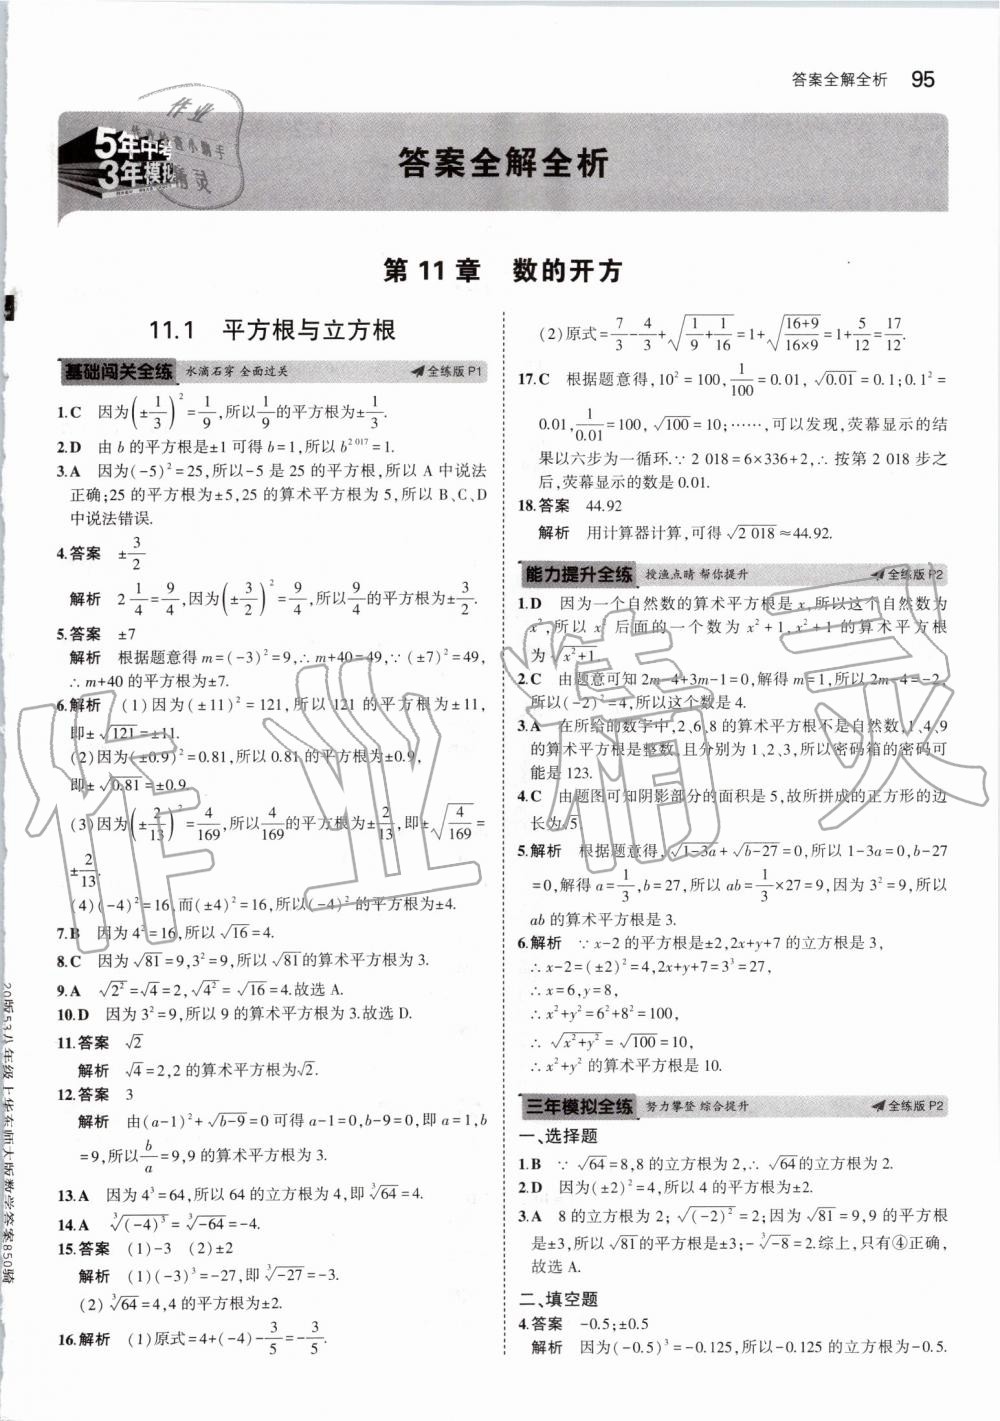 答案全解全析 95
5年中考
3年模拟
答案全解全析
第11章 数的开方
11.1 平方根与立方根
基础闯关全练 水滴石穿 全面过关 全练版P1
1.C 因为(±1/3)²=1/9,所以1/9的平方根为±1/3.
2.D 由b的平方根是±1可得b=1,所以b^{2 017}=1.
3.A 因为(-5)²=25,所以-5是25的平方根,所以A中说法
正确;25的平方根为±5,25的算术平方根为5,所以B、C、D
中说法错误.
4.答案 ±3/2
解析 2 1/4=9/4,因为(±3/2)²=9/4,所以9/4的平方根为±3/2.
5.答案 ±7
解析 根据题意得m=(-3)²=9,∴m+40=49,∵(±7)²=49,
∴m+40的平方根为±7.
6.解析 (1)因为(±11)²=121,所以121的平方根为±11,
即±√121=±11.
(2)因为(±0.9)²=0.81,所以0.81的平方根为±0.9,
即±√0.81=±0.9.
(3)因为(±2/13)²=4/169,所以4/169的平方根为±2/13,即±√(4/169)=
±2/13.
(4)(-4)²=16,而(±4)²=16,所以(-4)²的平方根为±4.
7.B 因为4²=16,所以√16=4.
8.C 因为√81=9,3²=9,所以√81的算术平方根为3.
9.A √2²=√4=2,√4²=√16=4.故选A.
10.D 因为3²=9,所以9的算术平方根为3.故选D.
11.答案 √2
解析 √4=2,2的算术平方根为√2.
12.答案 3
解析 由(a-1)²+√(b-9)=0可得a-1=0,b-9=0,即a=1,b
=9,所以b/a=9,9的算术平方根为3.
13.A 因为4³=64,所以64的立方根为4,即∛64=4.
14.A ∛(-4)³=∛-64=-4.
15.答案 (1)-3 (2)±2
解析 (1)(-3)³=-27,即∛-27=-3.
(2)∛64=4,4的平方根为±2.
16.解析 (1)原式=4+(-4)-3/5=-3/5.
(2)原式=7/3-4/3+√(1/9+1/16)=1+√((16+9)/(16×9))=1+5/12=17/12.
17.C 根据题意得,10²=100,1/100=0.01,√0.01=0.1;0.1²=
0.01,1/0.01=100,√100=10;……,可以发现,荧幕显示的结
果以六步为一循环.∵2 018=6×336+2,∴按第2 018步之
后,荧幕显示的数是0.01.
18.答案 44.92
解析 用计算器计算,可得√2 018≈44.92.
能力提升全练 授渔点睛 帮你提升 全练版P2
1.D 因为一个自然数的算术平方根是x,所以这个自然数为
x²,所以x²后面的一个数为x²+1,x²+1的算术平方根
为√(x²+1).
2.C 由题意可知2m-4+3m-1=0,解得m=1,所以2m-4=-2,
所以(-2)²=4,所以这个数是4.
3.A 在所给的数字中,2、6、8的算术平方根不是自然数,1、4、9
的算术平方根是整数,且分别为1、2、3,所以密码箱的密码可
能是123.
4.C 由题图可知阴影部分的面积是5,故所拼成的正方形的边
长为√5.
5.解析 根据题意得,√(1-3a)+√(b-27)=0,所以1-3a=0,b-27
=0,解得a=1/3,b=27,所以ab=1/3×27=9,因为3²=9,所以
ab的算术平方根是3.
6.解析 ∵x-2的平方根是±2,2x+y+7的立方根是3,
∴x-2=(±2)²=4,2x+y+7=3³=27,
∴x=6,y=8,
∴x²+y²=6²+8²=100,
∴√(x²+y²)=√100=10,
∴x²+y²的算术平方根是10.
三年模拟全练 努力攀登 综合提升 全练版P2
一、选择题
1.B ∵√64=8,8的立方根为2,∴√64的立方根为2.
2.D 因为(±2)²=4,所以4的平方根为±2.
3.A 8的立方根为2;√(-2)²=2;因为√81=9,9的平方根
是±3,所以√81的平方根是±3;-∛-8=2.综上,只有④正确,
故选A.
二、填空题
4.答案 -0.5;±0.5
解析 因为(-0.5)³=-0.125,所以-0.125的立方根为-0.5.
20版53八年级上华东师大版数学答案850骑
作业精灵